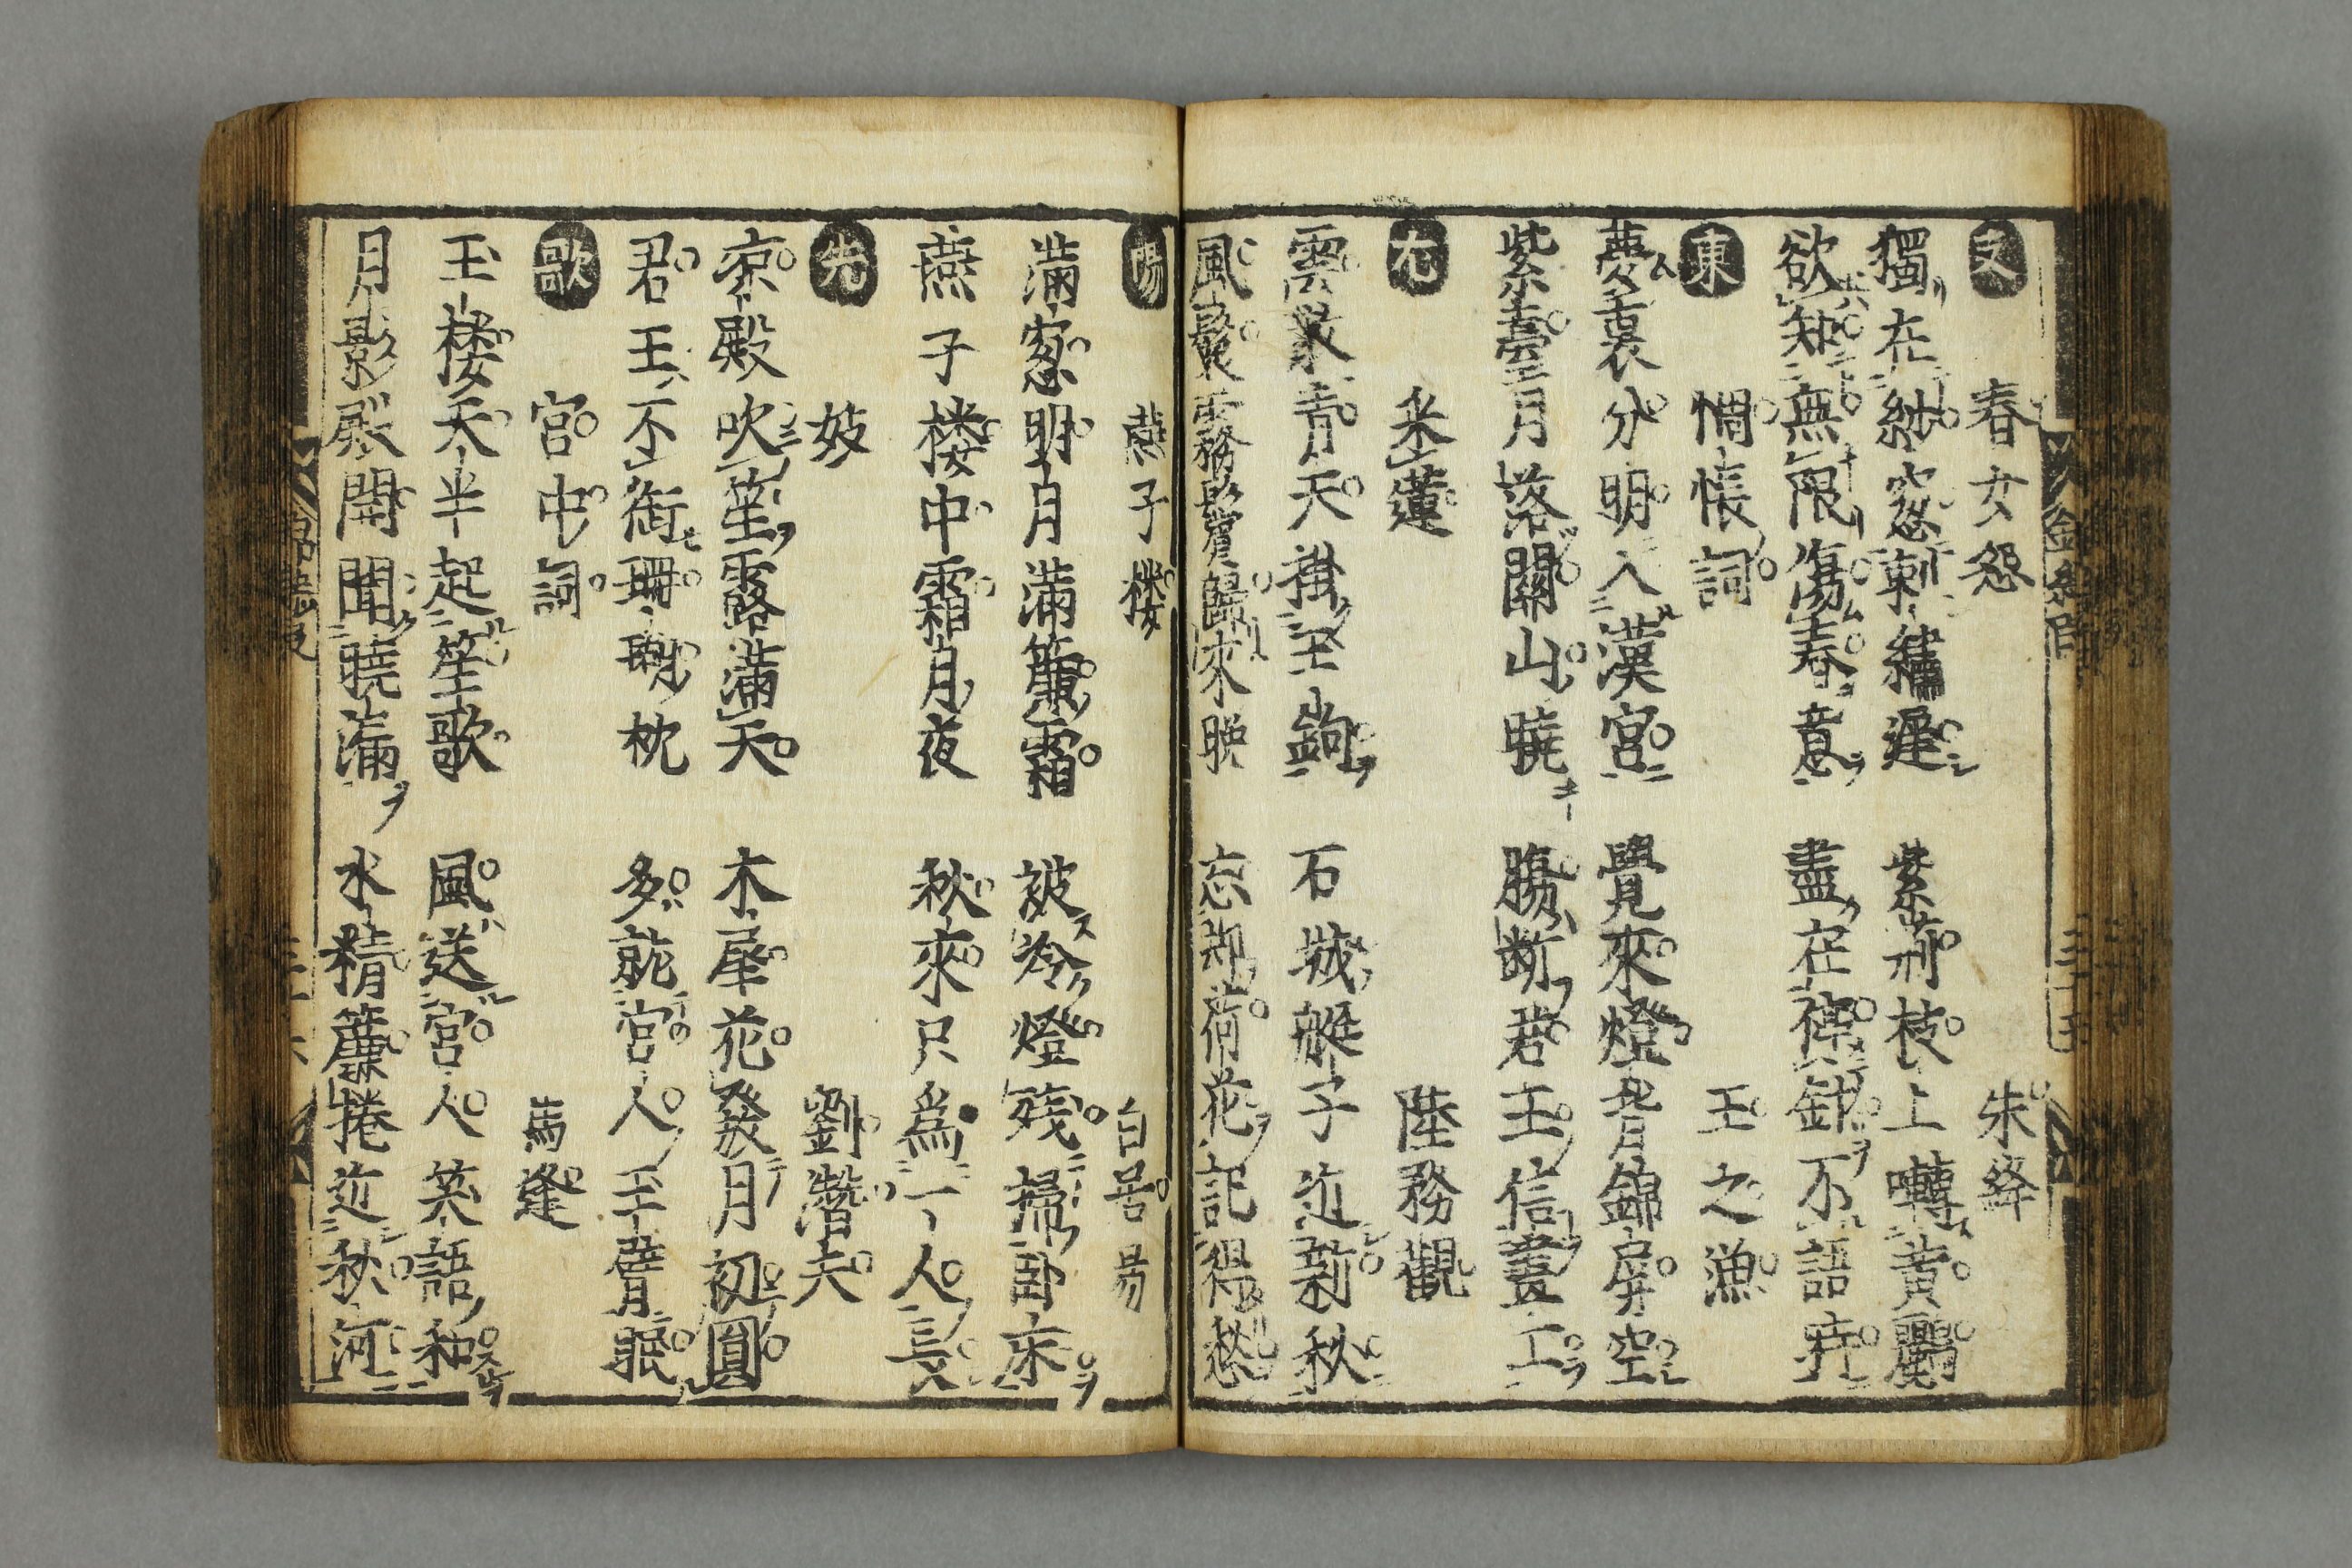 支 春女怨 朱絳
獨在紗窓刺繡遲 紫荊枝上囀黃鸝
欲知無限傷春意 盡在停針不語時
東 惆悵詞 王之漁
夢裏分明入漢宮 覺來燈背錦屏空
紫臺月落關山曉 膓断君王信畫工
尤 采蓮 陸務觀
雲散青天掛玉鉤 石城艇子近新秋
風鬟霧鬢歸來晚 忘却荷花記得愁
陽 燕子楼 白居易
滿窓明月滿簾霜 被冷燈殘拂卧床
燕子楼中霜月夜 秋來只爲一人長
先 妓 劉潜夫
凉殿吹笙露滿天 木犀花發月初圓
君王不御珊瑚枕 多就宮人玉臂眠
歌 宮中詞 馬逢
玉楼天半起笙歌 風送宮人笑語和
月影殿開聞曉漏 水精簾捲近秋河